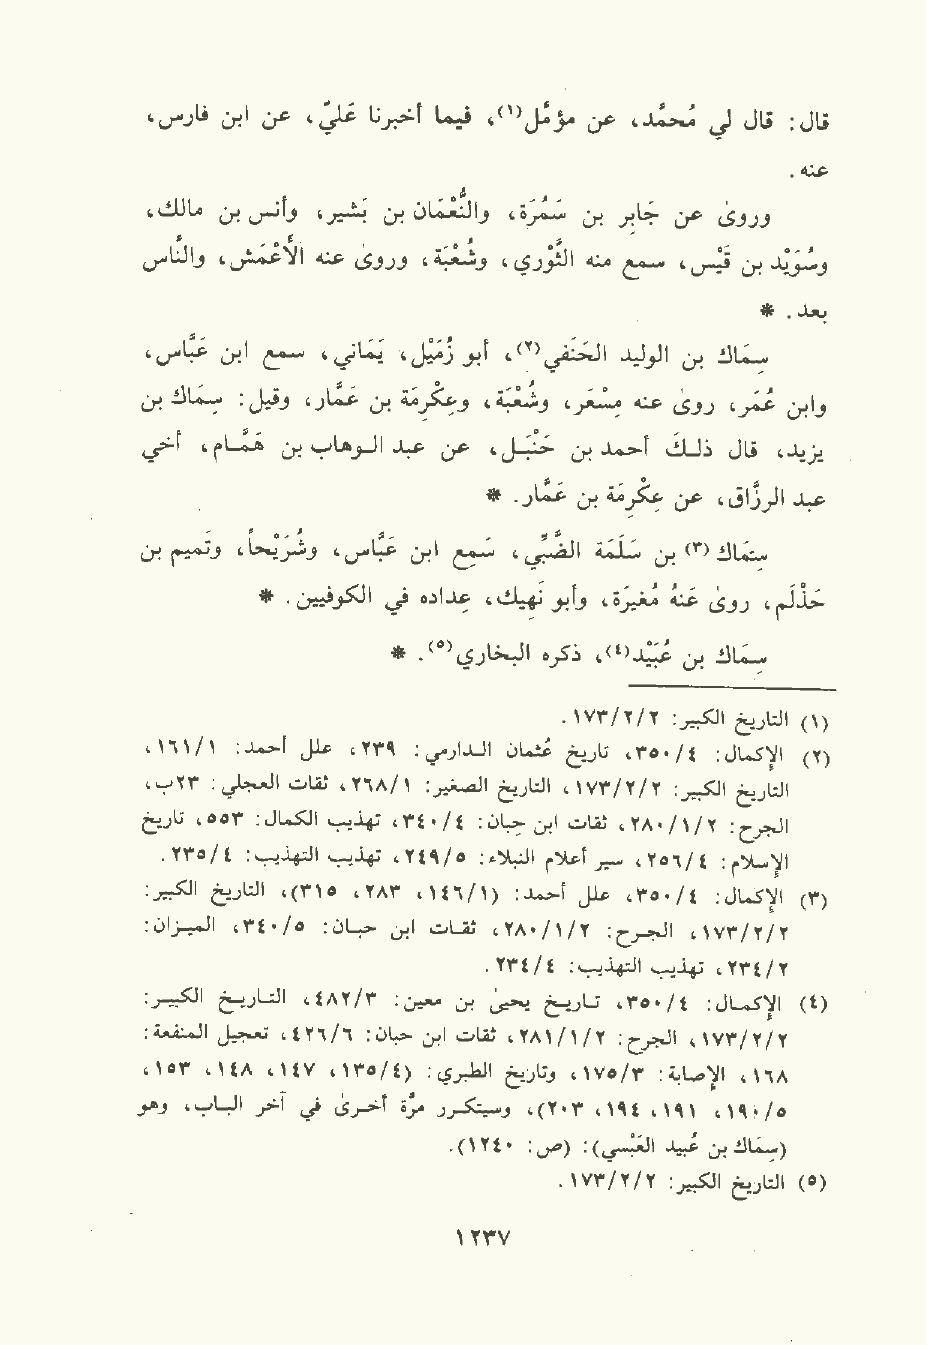 قال: قال لي مُحمَّد، عن مؤمَّل(١)، فيما أخبرنا عَليّ، عن ابن فارس،
عنه.
وروى عن جَابر بن سَمُرَة، والنُّعْمَان بن بَشير، وأنس بن مالك،
وسُوَيْد بن قَيْس، سمع منه الثَّوْري، وشُعْبَة، ورَوى عنه الأَعْمَش، والنَّاس
بعد. *
سِمَاك بن الوليد الحَنَفي(٢)، أبو زُمَيْل، يَمَاني، سمع ابن عَبَّاس،
وابن عُمَر، رَوى عنه مِسْعَر، وشُعْبَة، وعِكْرمَة بن عَمَّار، وقيل: سِمَاك بن
يزيد، قال ذلكَ أحمد بن حَنْبَل، عن عبد الوهاب بن هَمَّام، أخي
عبد الرزَّاق، عن عِكْرِمَة بن عَمَّار. *
سِمَاك(٣) بن سَلَمَة الضَّبِّي، سَمِع ابن عَبَّاس، وشُرَيْحاً، وتَميم بن
حَذْلَم، رَوى عَنهُ مُغيرَة، وأبو نَهِيك، عِداده في الكوفيين. *
سِمَاك بن عُبَيْد(٤)، ذكره البخاري(٥). *
(١) التاريخ الكبير: ١٧٣/٢/٢.
(٢) الإكمال: ٣٥٠/٤، تاريخ عثمان الدارمي: ٢٣٩، علل أحمد: ١٦١/١،
التاريخ الكبير: ١٧٣/٢/٢، التاريخ الصغير: ٢٦٨/١، ثقات العجلي: ٢٣ب،
الجرح: ٢٨٠/١/٢، ثقات ابن حبان: ٣٤٠/٤، تهذيب الكمال: ٥٥٣، تاريخ
الإسلام: ٢٥٦/٤، سير أعلام النبلاء: ٢٤٩/٥، تهذيب التهذيب: ٢٣٥/٤.
(٣) الإكمال: ٣٥٠/٤، علل أحمد: (١٤٦/١، ٢٨٣، ٣١٥)، التاريخ الكبير:
١٧٣/٢/٢، الجرح: ٢٨٠/١/٢، ثقات ابن حبان: ٣٤٠/٥، الميزان:
٢٣٤/٢، تهذيب التهذيب: ٢٣٤/٤.
(٤) الإكمال: ٣٥٠/٤، تاريخ يحيىٰ بن معين: ٤٨٢/٣، التاريخ الكبير:
١٧٣/٢/٢، الجرح: ٢٨١/١/٢، ثقات ابن حبان: ٤٢٦/٦، تعجيل المنفعة:
١٦٨، الإصابة: ١٧٥/٣، وتاريخ الطبري: (١٣٥/٤، ١٤٧، ١٤٨، ١٥٣،
١٩٠/٥، ١٩١، ١٩٤، ٢٠٣)، وسيتكرر مرّة أخرى في آخر الباب، وهو
(سِمَاك بن عُبيد العَبْسي): (ص: ١٢٤٠).
(٥) التاريخ الكبير: ١٧٣/٢/٢.
١٢٣٧